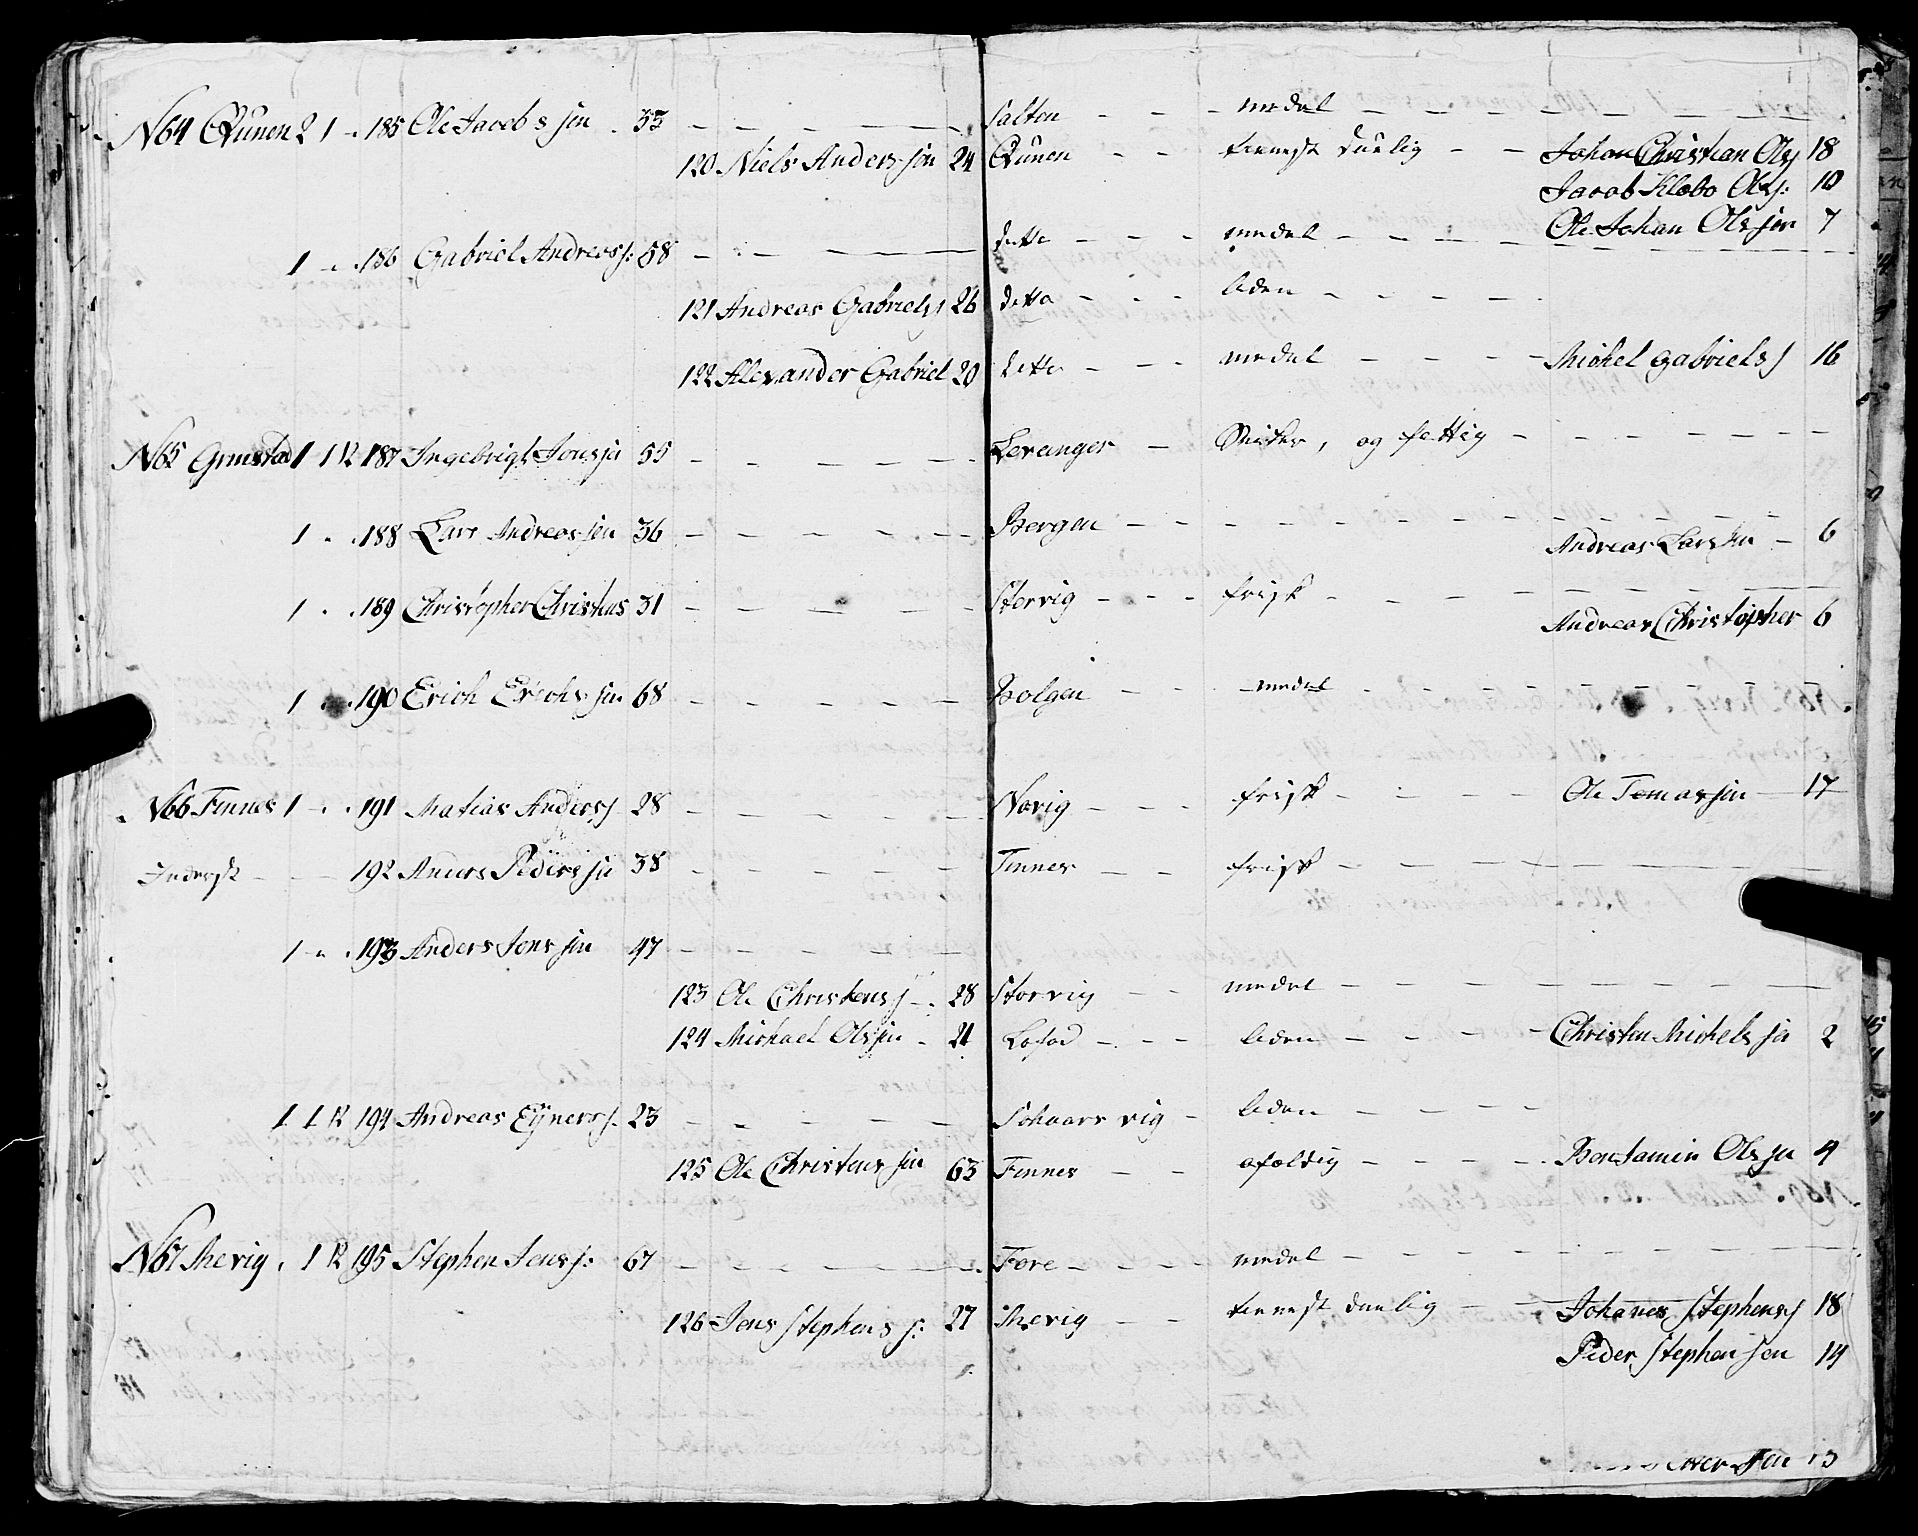 N64 Qvunen 2 1 185 Ole Jacobs søn 33 Salten medel
120 Niels Anders søn 24 Qvunen tienest dunlig Johan Christian Ols 18
Jacob Klebo Ols: 10
1 186 Gabriel Andreas s: 58 ditto medel Ole Johan Ols søn 7
121 Andreas Gabriels 26 ditto liden
122 Alexander Gabriel 20 ditto medel Michel Gabriels 16
N65 Grmstad 1 1 12 187 Ingebrigt Jons sø 55 Levanger og fattig
1 188 Lars Andreas søn 36 Bergen
Andreas Larssen 6
1 189 Christopher Christens 31 Storvig frisk
Andreas Christopher 6
1 190 Erich Erichs søn 68 Bolgen medel
N66 Finnes 1 191 Matias Anders 28 Norig frisk Ole Tomas søn 17
Inderst 192 Anders Peders sø 38 Finnes frisk
1 193 Anders Jens søn 47
123 Ole Christens 28 Storvig medel
124 Michael Ols søn 21 Lofod liden Christen Michels sø 2
1 1 12 194 Andreas Ejners s: 23 Schaars vig liden
125 Ole Christens søn 63 Finnes afældig Benjamin Ols sø 4
N67 Shevig 1 12 195 Stephen Jens s: 67 Fore medel
126 Jens Stephens s: 27 Shevig tienest dunlig Johanes Stephens 18
Peder Stephen søn 14
søn 13